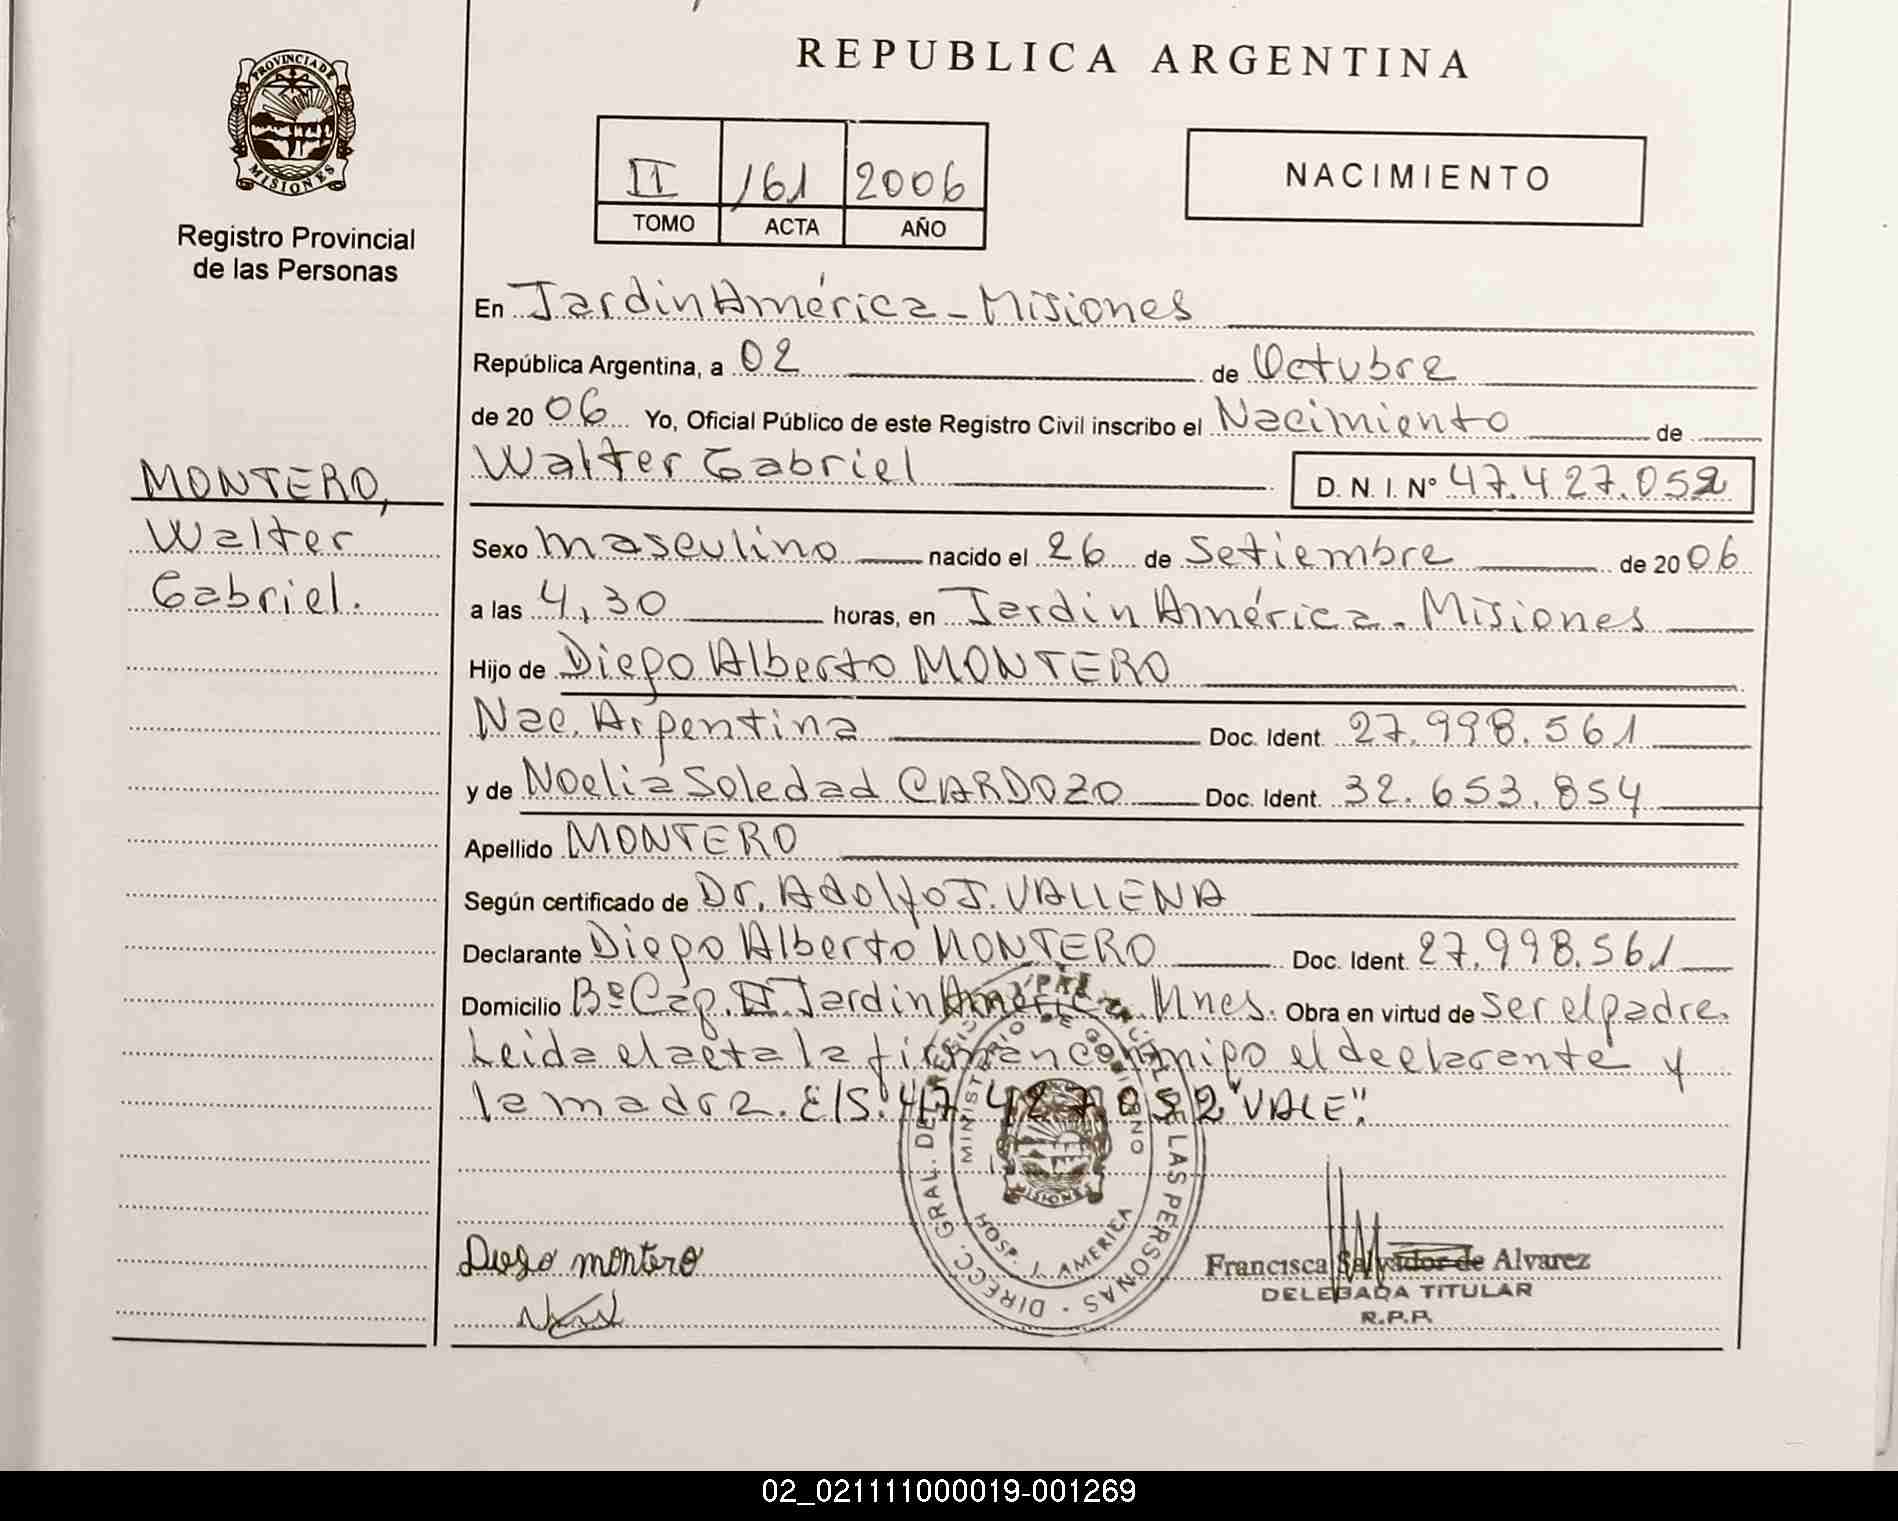 PROVINCIA DE
MISIONES
Registro Provincial
de las Personas
MONTERO,
Walter
Gabriel.
REPUBLICA ARGENTINA
II 161 2006
TOMO ACTA AÑO
NACIMIENTO
En Jardin América - Misiones
República Argentina, a 02 de Octubre
de 2006 Yo, Oficial Público de este Registro Civil inscribo el Nacimiento de
Walter Gabriel D. N. I. Nº 47.427.052
Sexo masculino nacido el 26 de Setiembre de 2006
a las 4,30 horas, en Jardin América - Misiones
Hijo de Diego Alberto MONTERO
Nac. Argentina Doc. Ident. 27.998.561
y de Noelia Soledad CARDOZO Doc. Ident. 32.653.854
Apellido MONTERO
Según certificado de Dr. Adolfo J. VALLENA
Declarante Diego Alberto MONTERO Doc. Ident. 27.998.561
Domicilio Bº Cap. II Jardin América. Mnes. Obra en virtud de ser el padre.
Leida el acta la firman conmigo el declarante y
la madre. E/S. 47.427.052 "VALE".
DIRECC. GRAL. DEL REGISTRO PROVINCIAL DE LAS PERSONAS
MINISTERIO DE GOBIERNO
MISIONES
HOSP. J. AMERICA
Diego montero
Francisca Salvador de Alvarez
DELEGADA TITULAR
R.P.P.
02_021111000019-001269